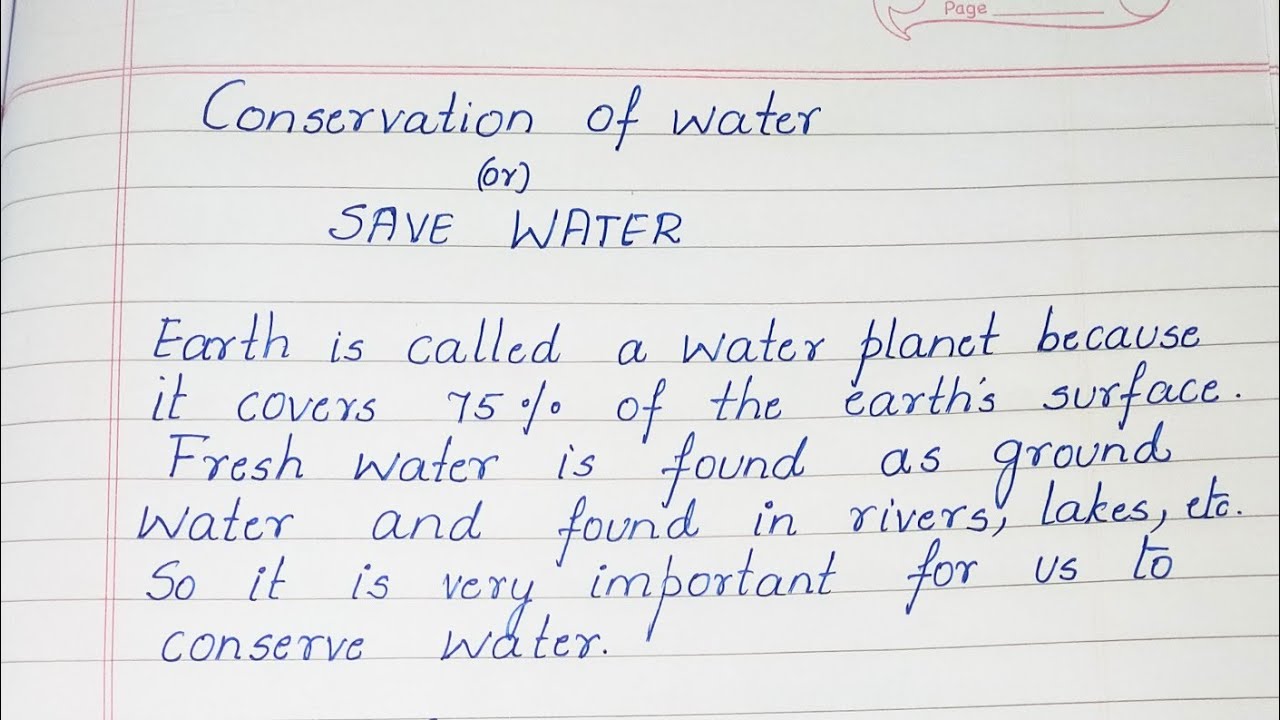 Page
Conservation of water
(or)
SAVE WATER
Earth is called a water planet because
it covers 75% of the earth's surface.
Fresh water is found as ground
water and found in rivers, lakes, etc.
So it is very important for us to
conserve water.